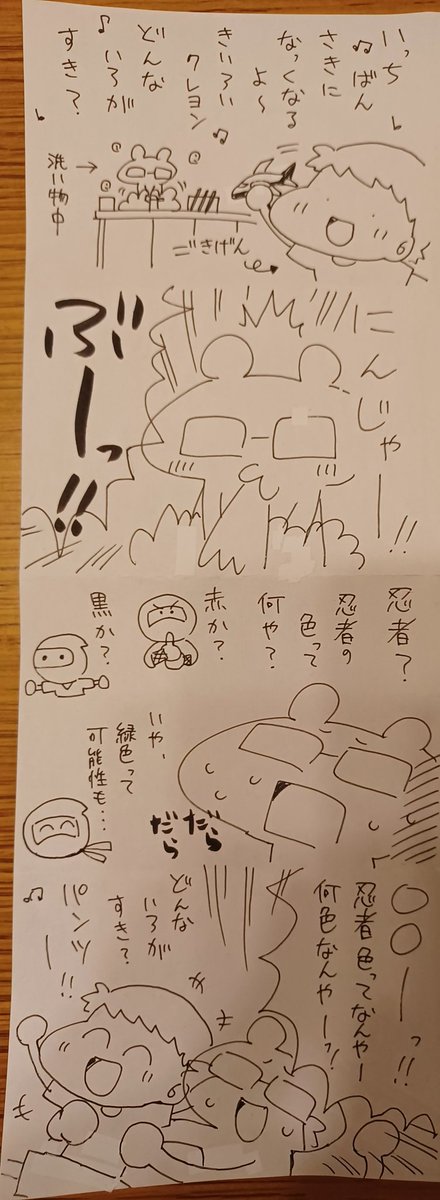 いっち
♫ばん
さきに
なっくなる
よ～
きいろい
クレヨン♫
どんな
いろが
すき？
洗い物中
ごきげん
にんじゃー!!
ぶーっ!!
忍者？
忍者の
色って
何や？
赤か？
黒か？
いや、
緑色って
可能性も…
だらだら
〇〇ーっ!!
忍者色ってなんやー
何色なんやーっ!
どんな
いろが
すき？
パンツー!!